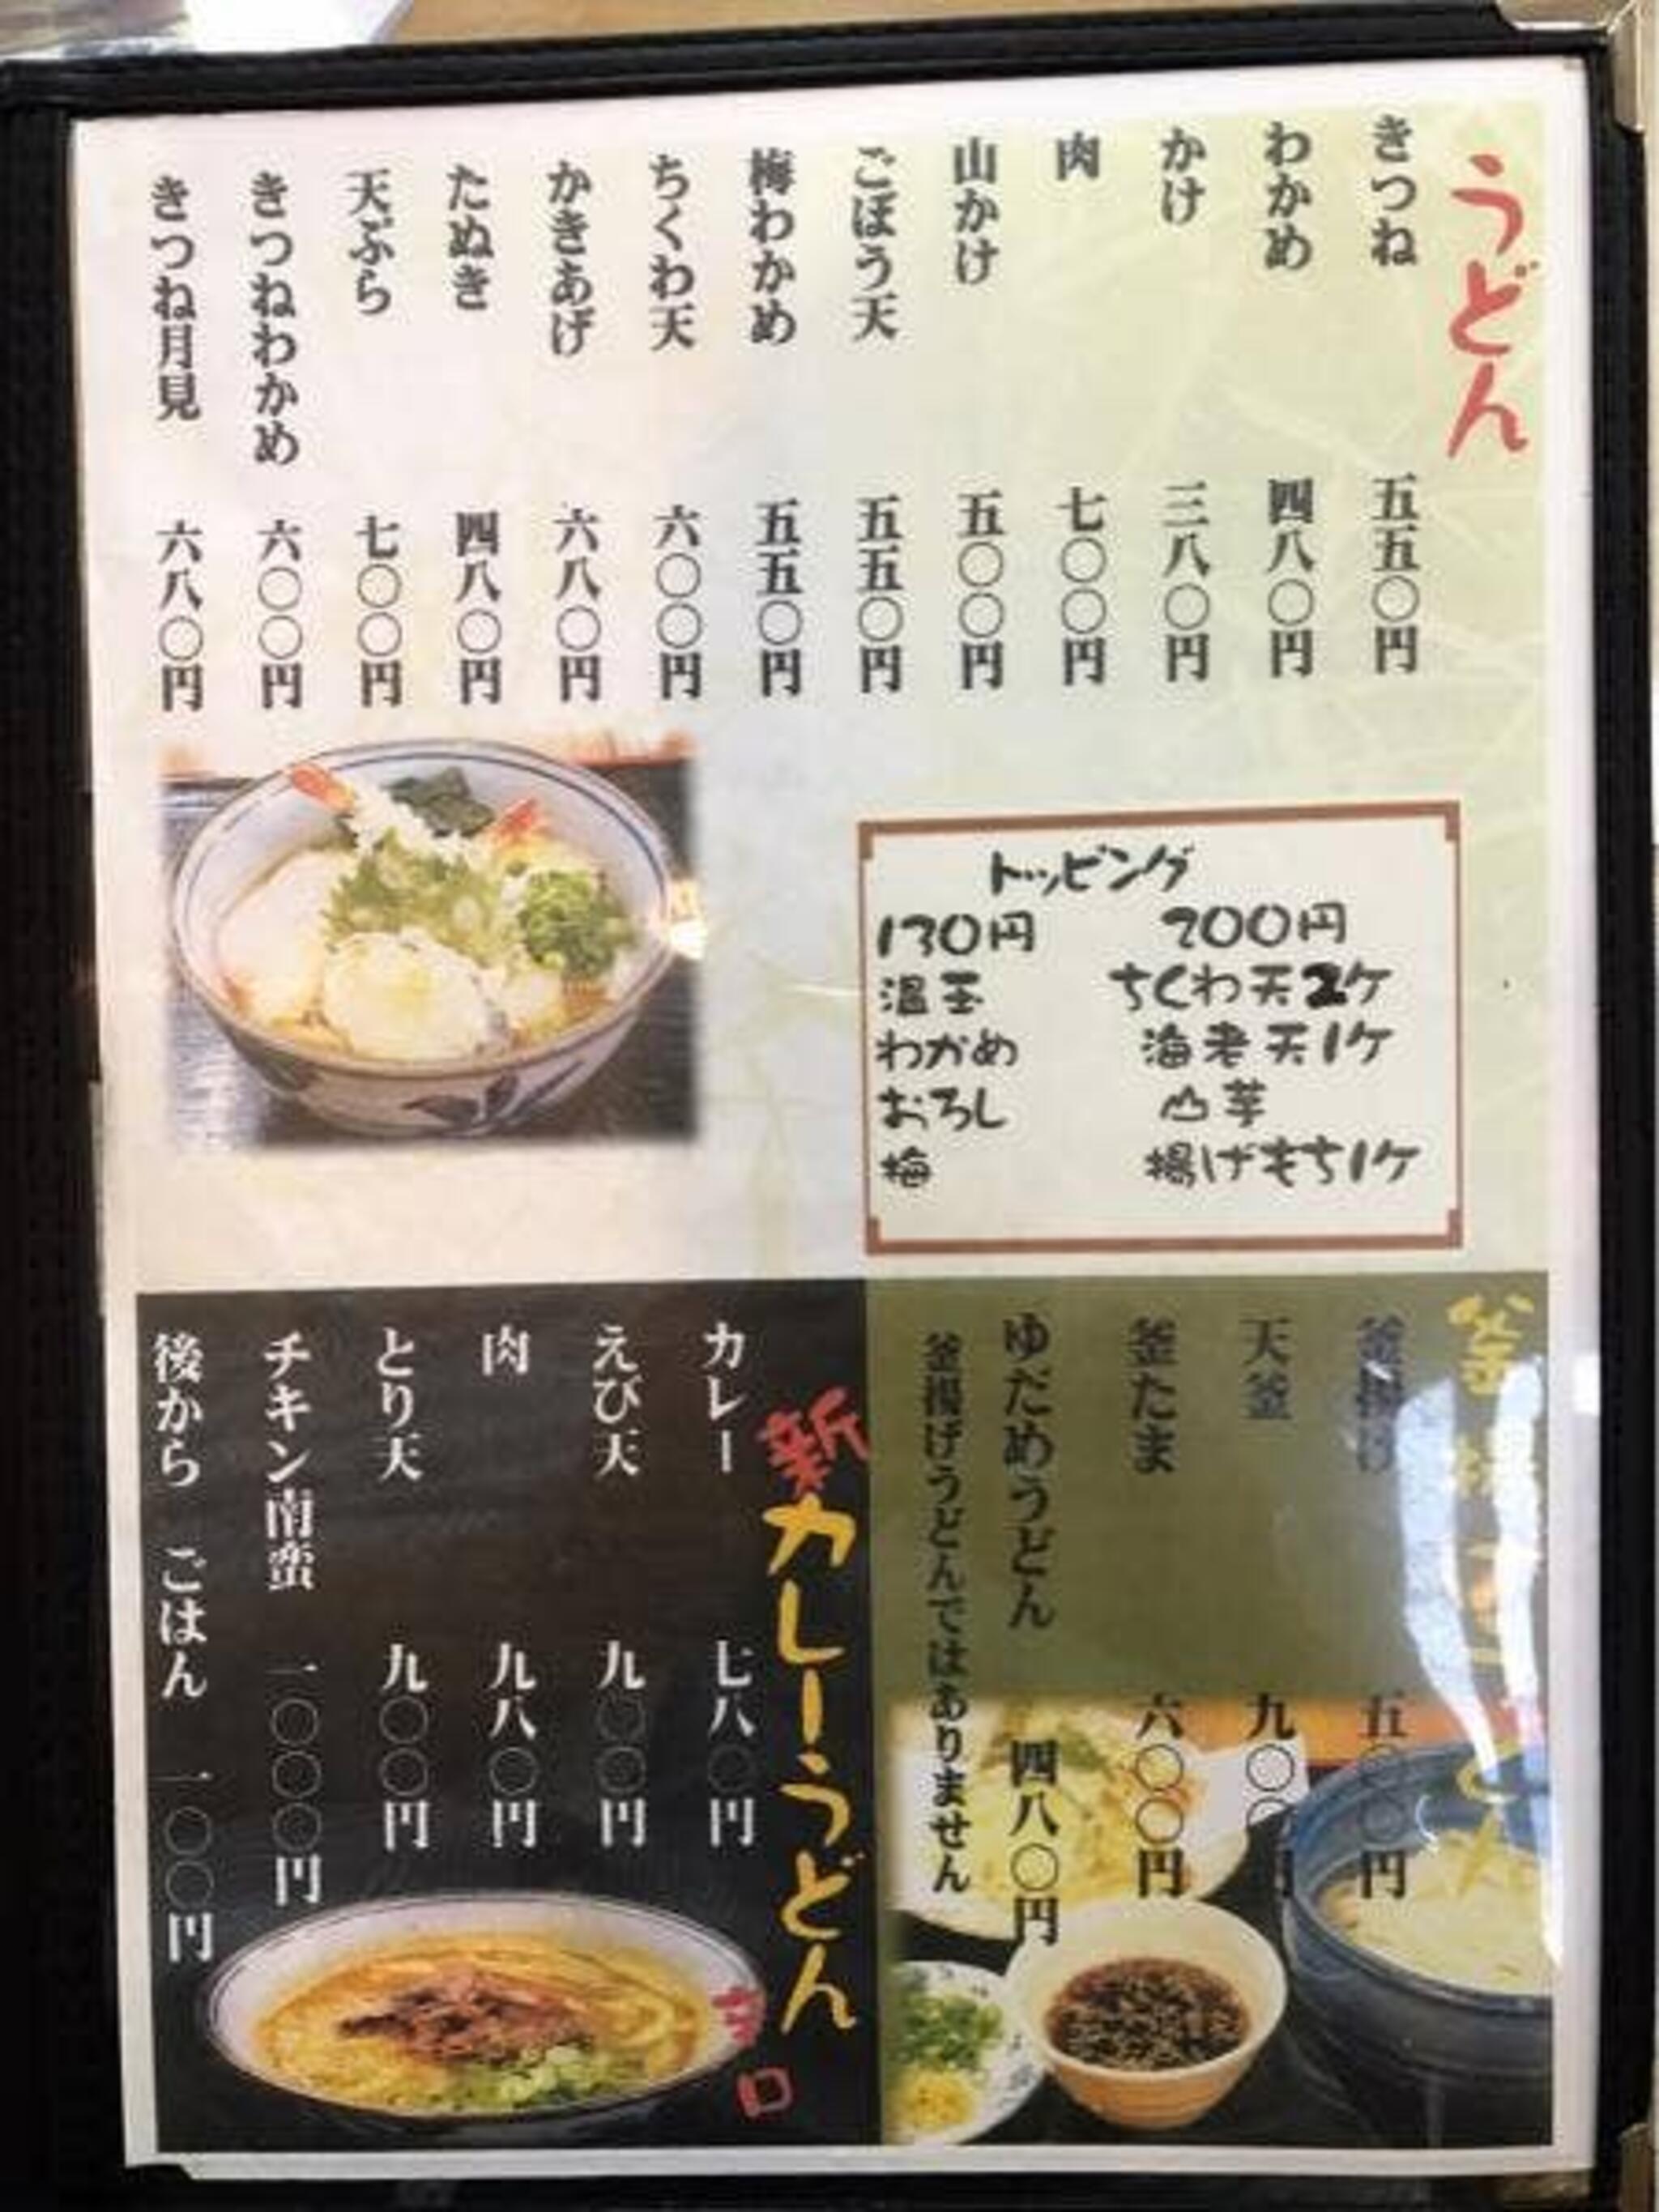 うどん
きつね 五五〇円
わかめ 四八〇円
かけ 三八〇円
肉 七〇〇円
山かけ 五〇〇円
ごぼう天 五五〇円
梅わかめ 五五〇円
ちくわ天 六〇〇円
かきあげ 六八〇円
たぬき 四八〇円
天ぷら 七〇〇円
きつねわかめ 六〇〇円
きつね月見 六八〇円
トッピング
130円
温玉
わかめ
おろし
梅
200円
ちくわ天2ケ
海老天1ケ
山芋
揚げもち1ケ
釜揚げ 五〇〇円
天釜 九〇〇円
釜たま 六〇〇円
ゆだめうどん 四八〇円
釜揚げうどんではありません
新カレーうどん
辛口
カレー 七八〇円
えび天 九〇〇円
肉 九八〇円
とり天 九〇〇円
チキン南蛮 一〇〇〇円
後から ごはん 一〇〇円